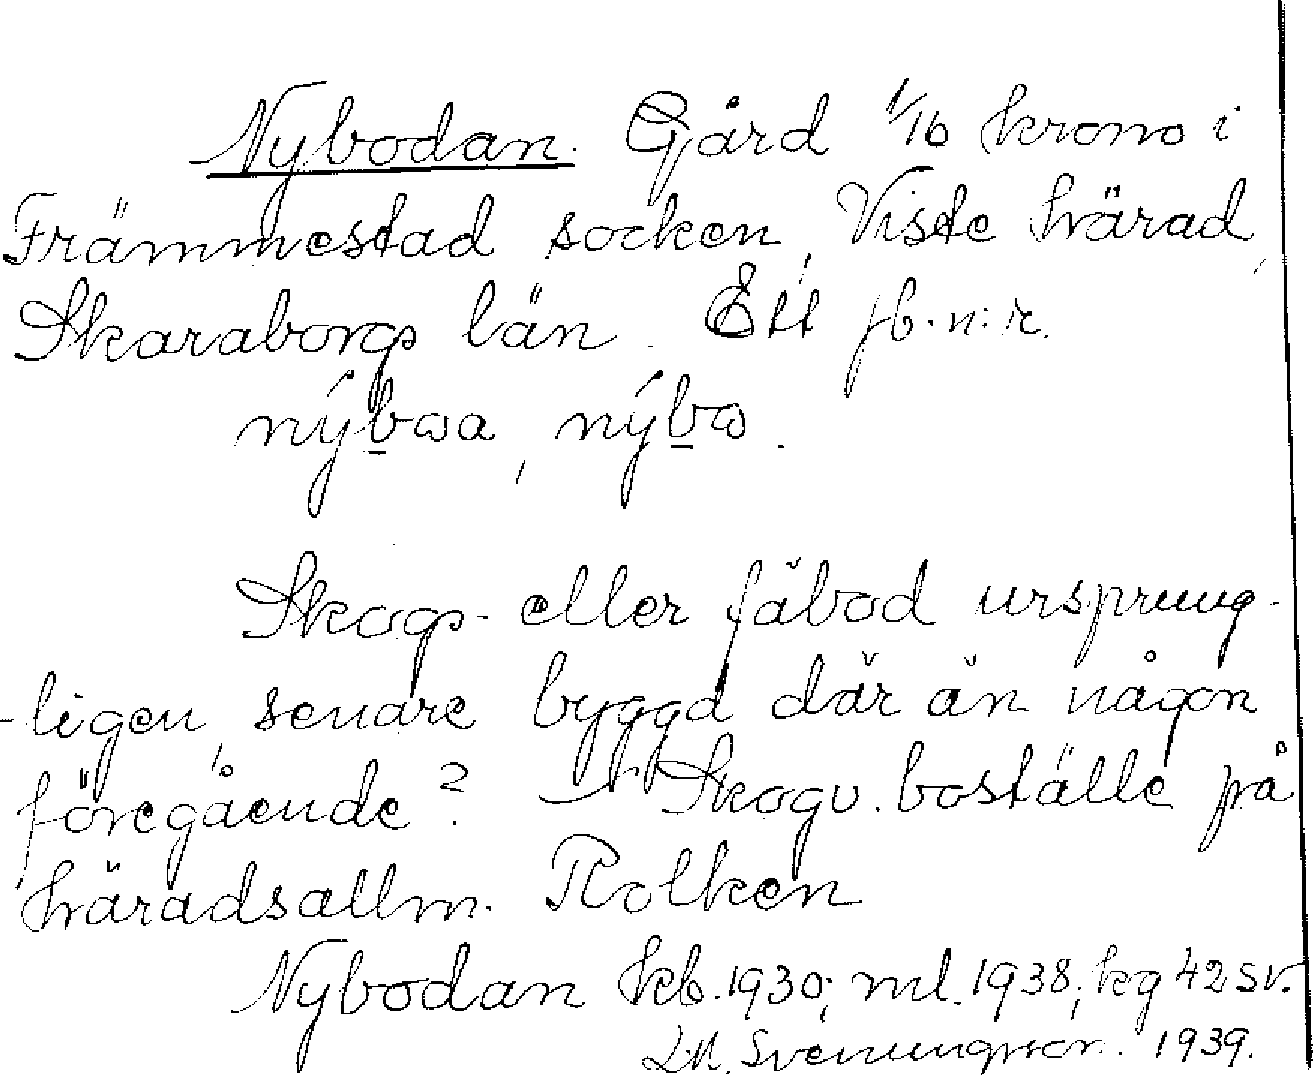 Nybodan. Gård 1/16 krono i
Främmestad socken, Viste härad,
Skaraborgs län. Ett jb.n:r.
nýbωa, nýbω.
Skogs- eller fäbod ursprung-
-ligen, senare byggd där än någon
föregående? Skogv. boställe på
häradsallm. Rolken
Nybodan kb. 1930; ml. 1938; kg 42 SV.
Svenungsson. 1939.